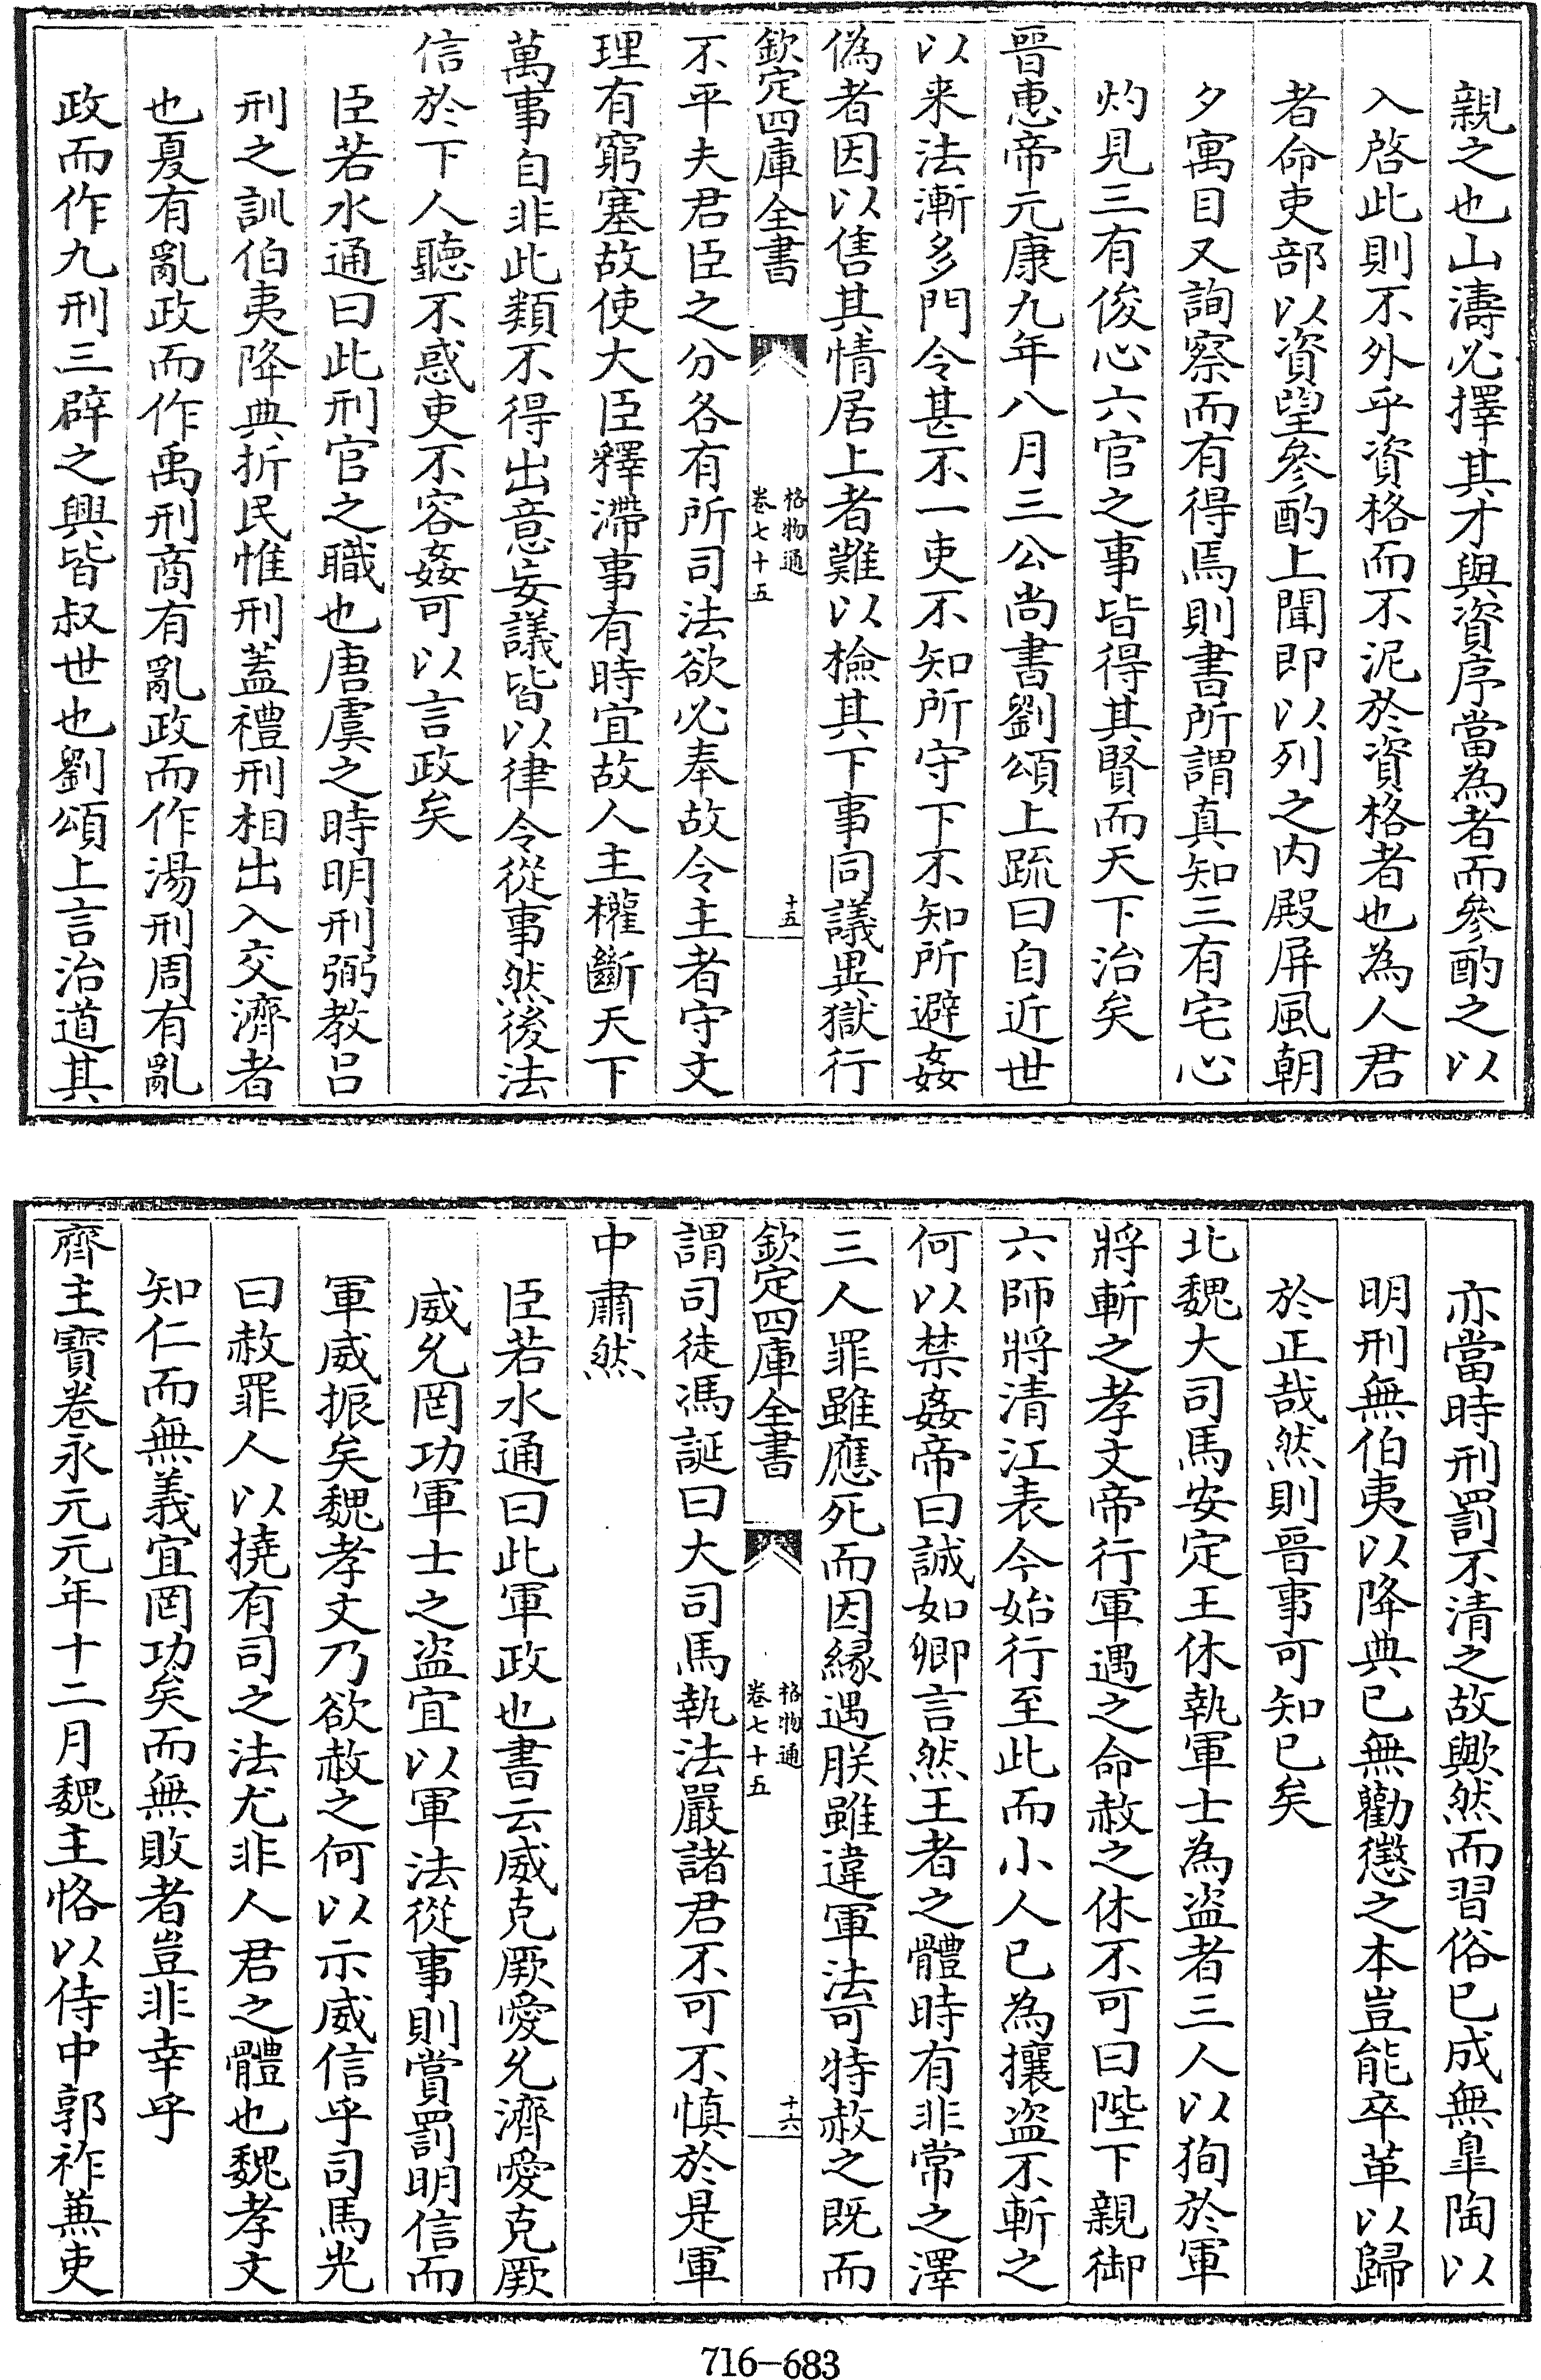 親之也山濤必擇其才與資序當為者而參酌之以
入啓此則不外乎資格而不泥於資格者也為人君
者命吏部以資望參酌上聞即以列之内殿屏風朝
夕寓目又詢察而有得焉則書所謂真知三有宅心
灼見三有俊心六官之事皆得其賢而天下治矣
晉惠帝元康九年八月三公尚書劉頌上疏曰自近世
以来法漸多門令甚不一吏不知所守下不知所避姦
偽者因以售其情居上者難以檢其下事同議異獄行
欽定四庫全書
格物通
卷七十五
十五
不平夫君臣之分各有所司法欲必奉故令主者守文
理有窮塞故使大臣釋滯事有時宜故人主權斷天下
萬事自非此類不得出意妄議皆以律令從事然後法
信於下人聽不惑吏不容姦可以言政矣
臣若水通曰此刑官之職也唐虞之時明刑弼教吕
刑之訓伯夷降典折民惟刑蓋禮刑相出入交濟者
也夏有亂政而作禹刑商有亂政而作湯刑周有亂
政而作九刑三辟之興皆叔世也劉頌上言治道其
亦當時刑罰不清之故歟然而習俗已成無臯陶以
明刑無伯夷以降典已無勸懲之本豈能卒革以歸
於正哉然則晉事可知已矣
北魏大司馬安定王休執軍士為盜者三人以狥於軍
將斬之孝文帝行軍遇之命赦之休不可曰陛下親御
六師將清江表今始行至此而小人已為攘盜不斬之
何以禁姦帝曰誠如卿言然王者之體時有非常之澤
三人罪雖應死而因縁遇朕雖違軍法可特赦之既而
欽定四庫全書
格物通
卷七十五
十六
謂司徒馮誕曰大司馬執法嚴諸君不可不慎於是軍
中肅然
臣若水通曰此軍政也書云威克厥愛允濟愛克厥
威允罔功軍士之盜宜以軍法從事則賞罰明信而
軍威振矣魏孝文乃欲赦之何以示威信乎司馬光
曰赦罪人以撓有司之法尤非人君之體也魏孝文
知仁而無義宜罔功矣而無敗者豈非幸乎
齊主寳卷永元元年十二月魏主恪以侍中郭祚兼吏
716-683